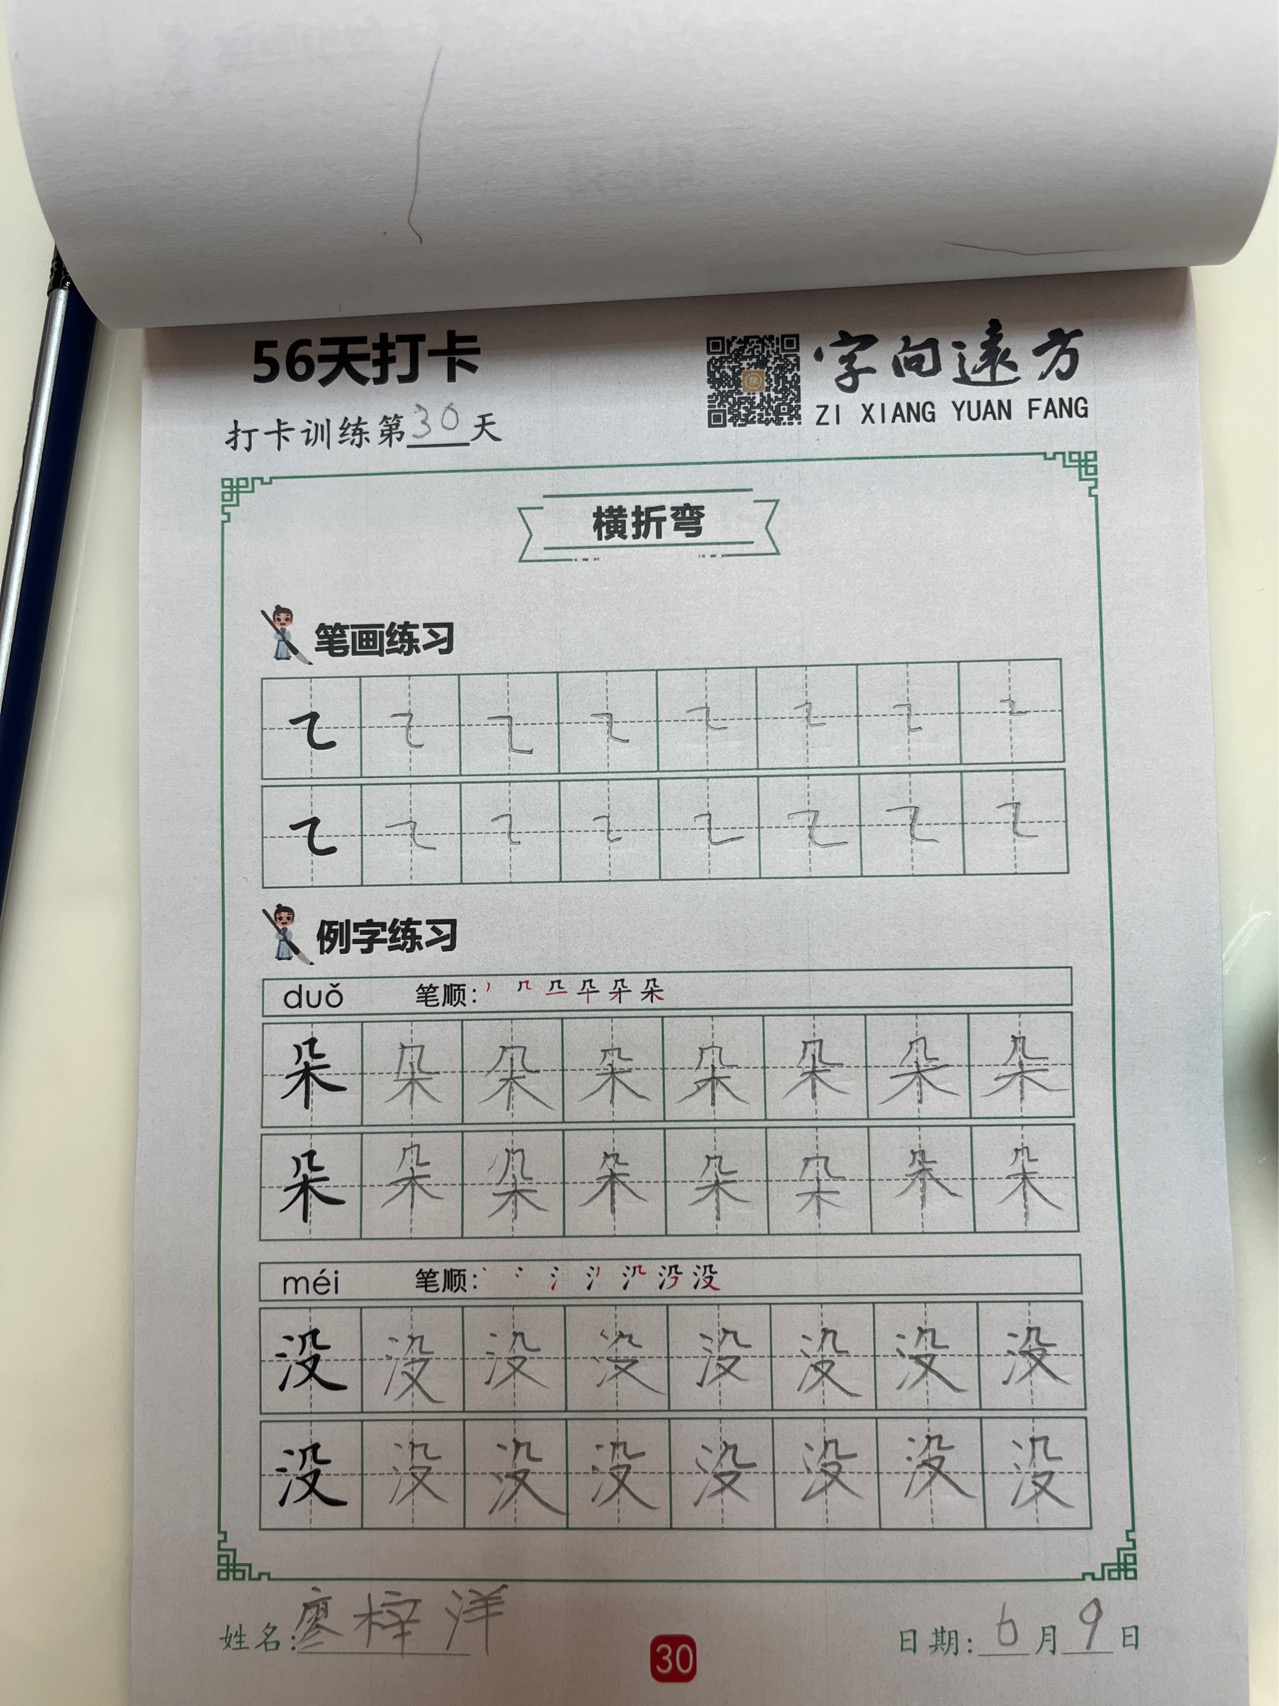 56天打卡
字向远方
ZI XIANG YUAN FANG
打卡训练第30天
横折弯
笔画练习
㇍ ㇍ ㇍ ㇍ ㇍ ㇍ ㇍ ㇍
㇍ ㇍ ㇍ ㇍ ㇍ ㇍ ㇍ ㇍
例字练习
duǒ 笔顺:
朵 朵 朵 朵 朵 朵 朵 朵
朵 朵 朵 朵 朵 朵 朵 朵
méi 笔顺:
没 没 没 没 没 没 没 没
没 没 没 没 没 没 没 没
姓名:廖梓洋
30
日期:6月9日